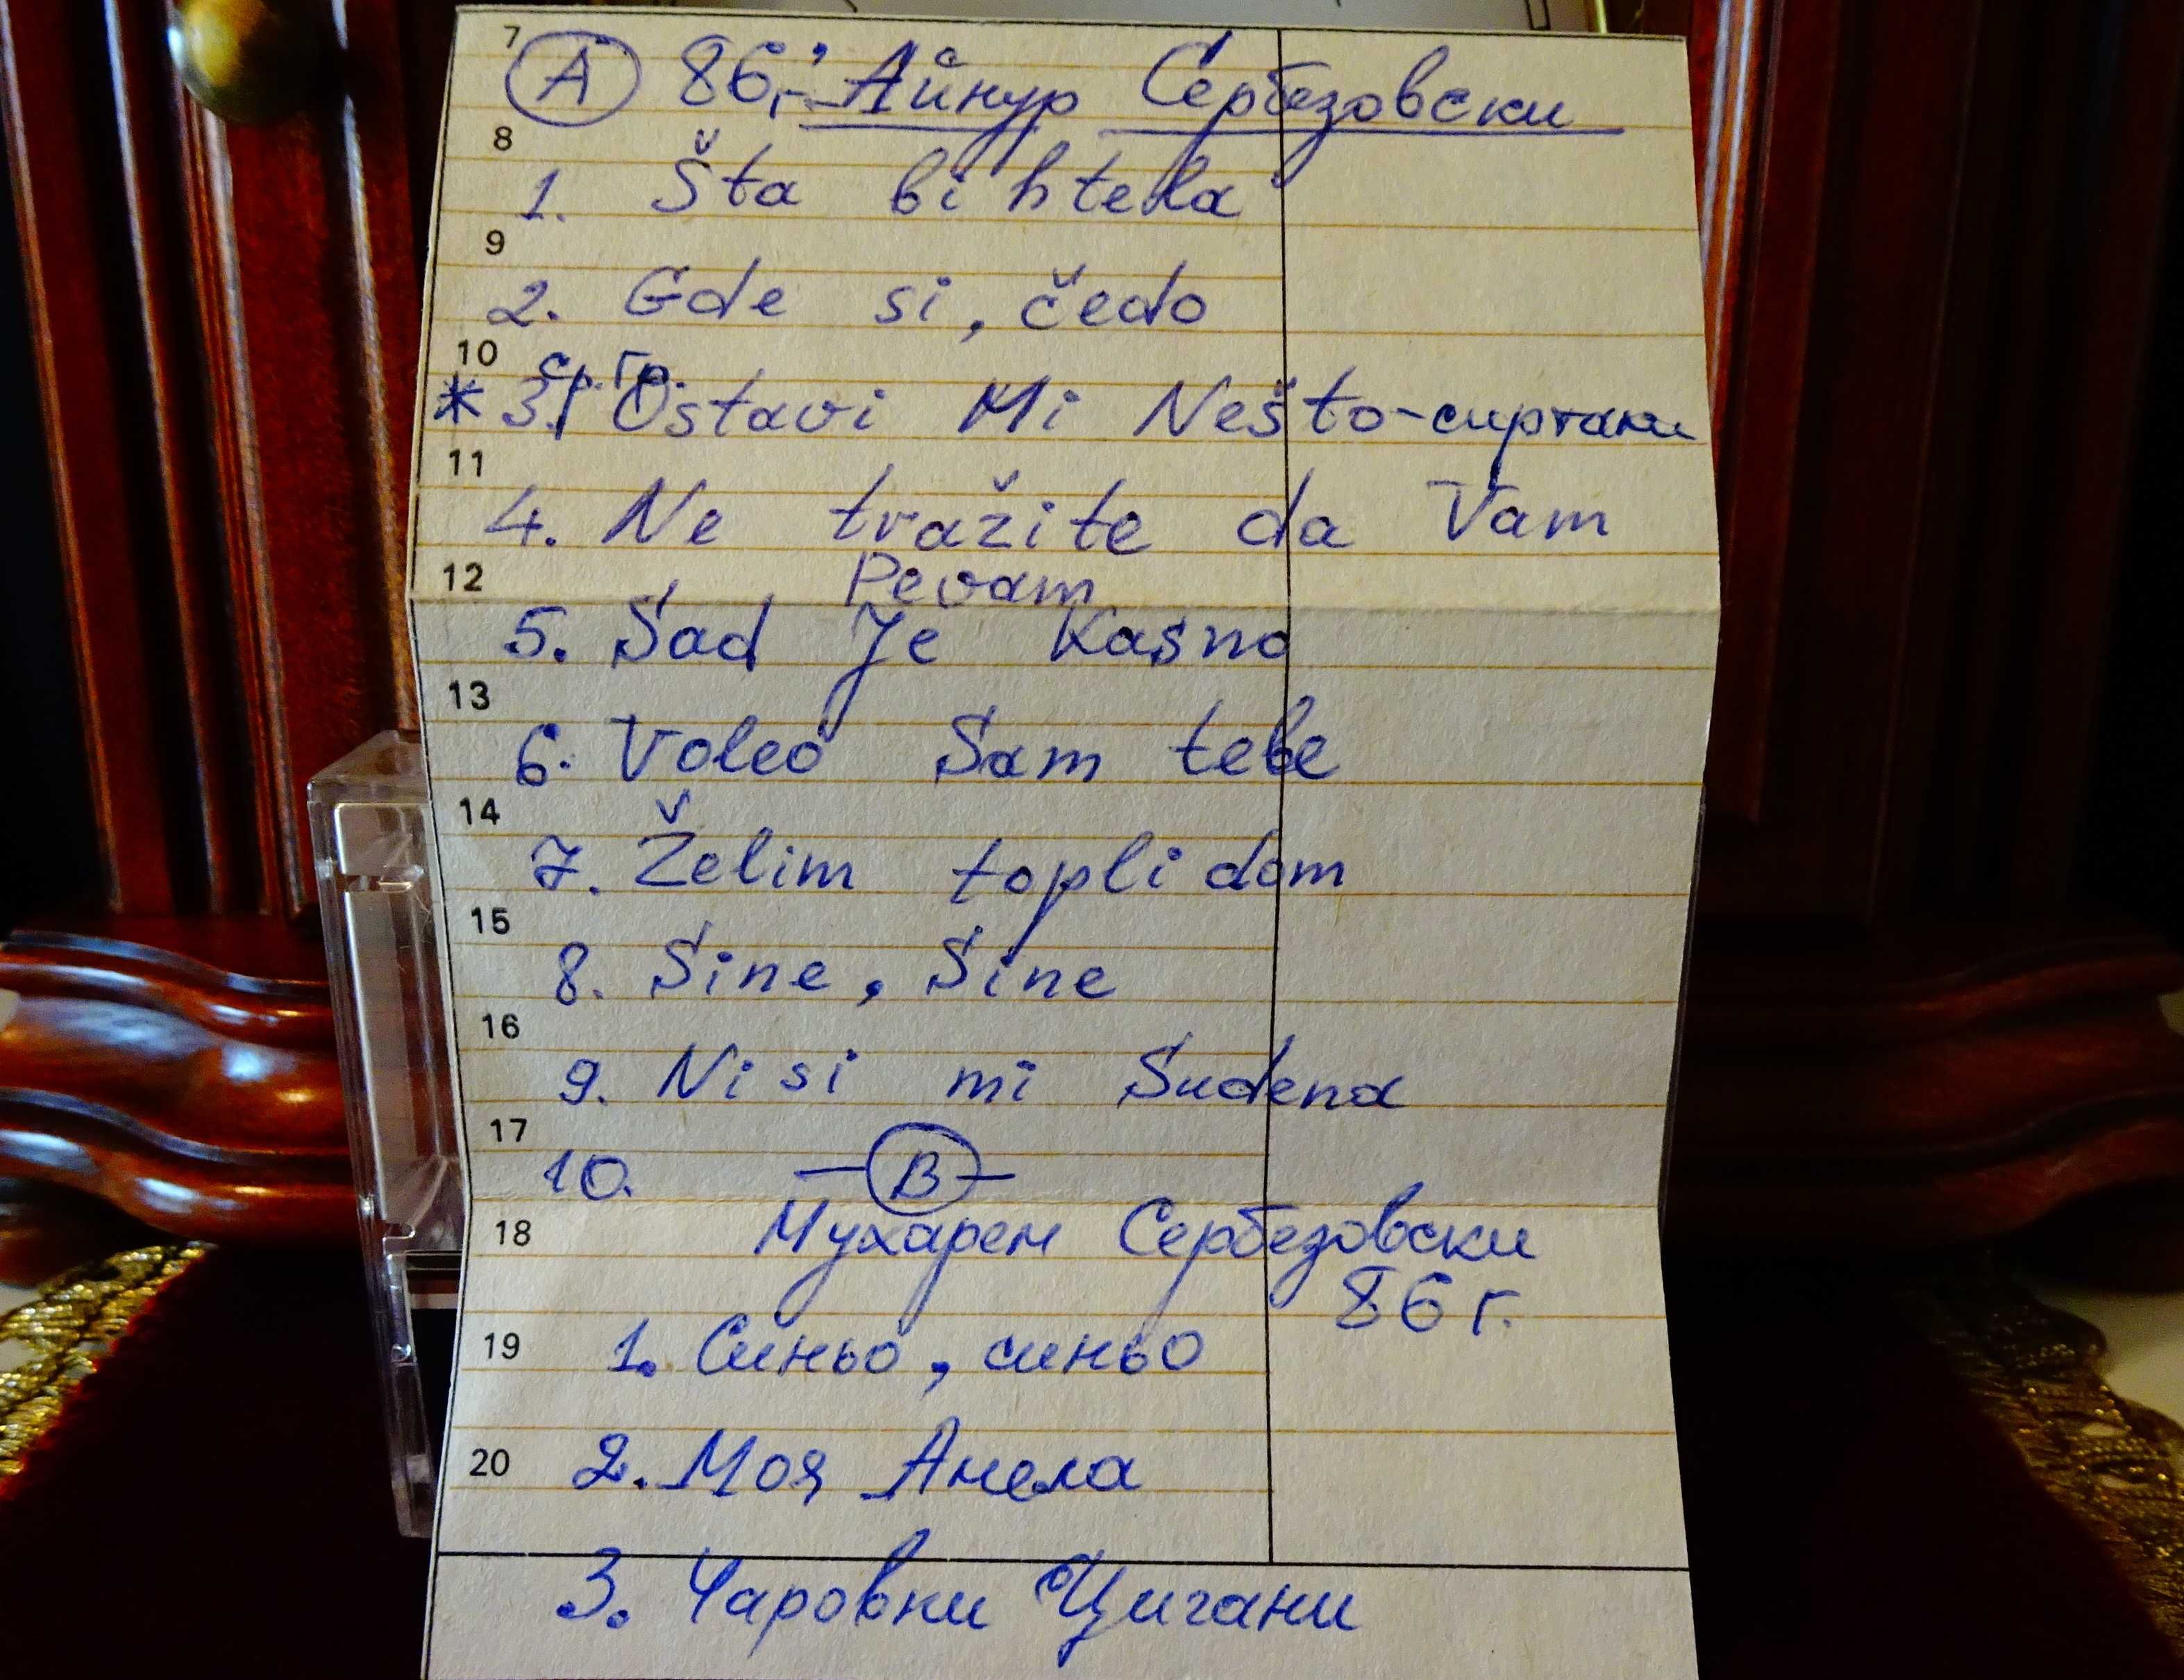 7
Ⓐ 86г. Айнур Сербезовски
8
1. Šta bi htela
9
2. Gde si, čedo
10
ср. гр.
* 3. Ostavi Mi Nešto-сиртаки
11
4. Ne tražite da Vam
12
Pevam
5. Sad Je Kasno
13
6. Voleo Sam tebe
14
7. Želim topli dom
15
8. Sine, Sine
16
9. Nisi mi Suđena
17
10. -Ⓑ-
18
Мухарем Сербезовски
86 г.
19
1. Синьо, синьо
20
2. Моя Анела
3. Чаровни Цигани